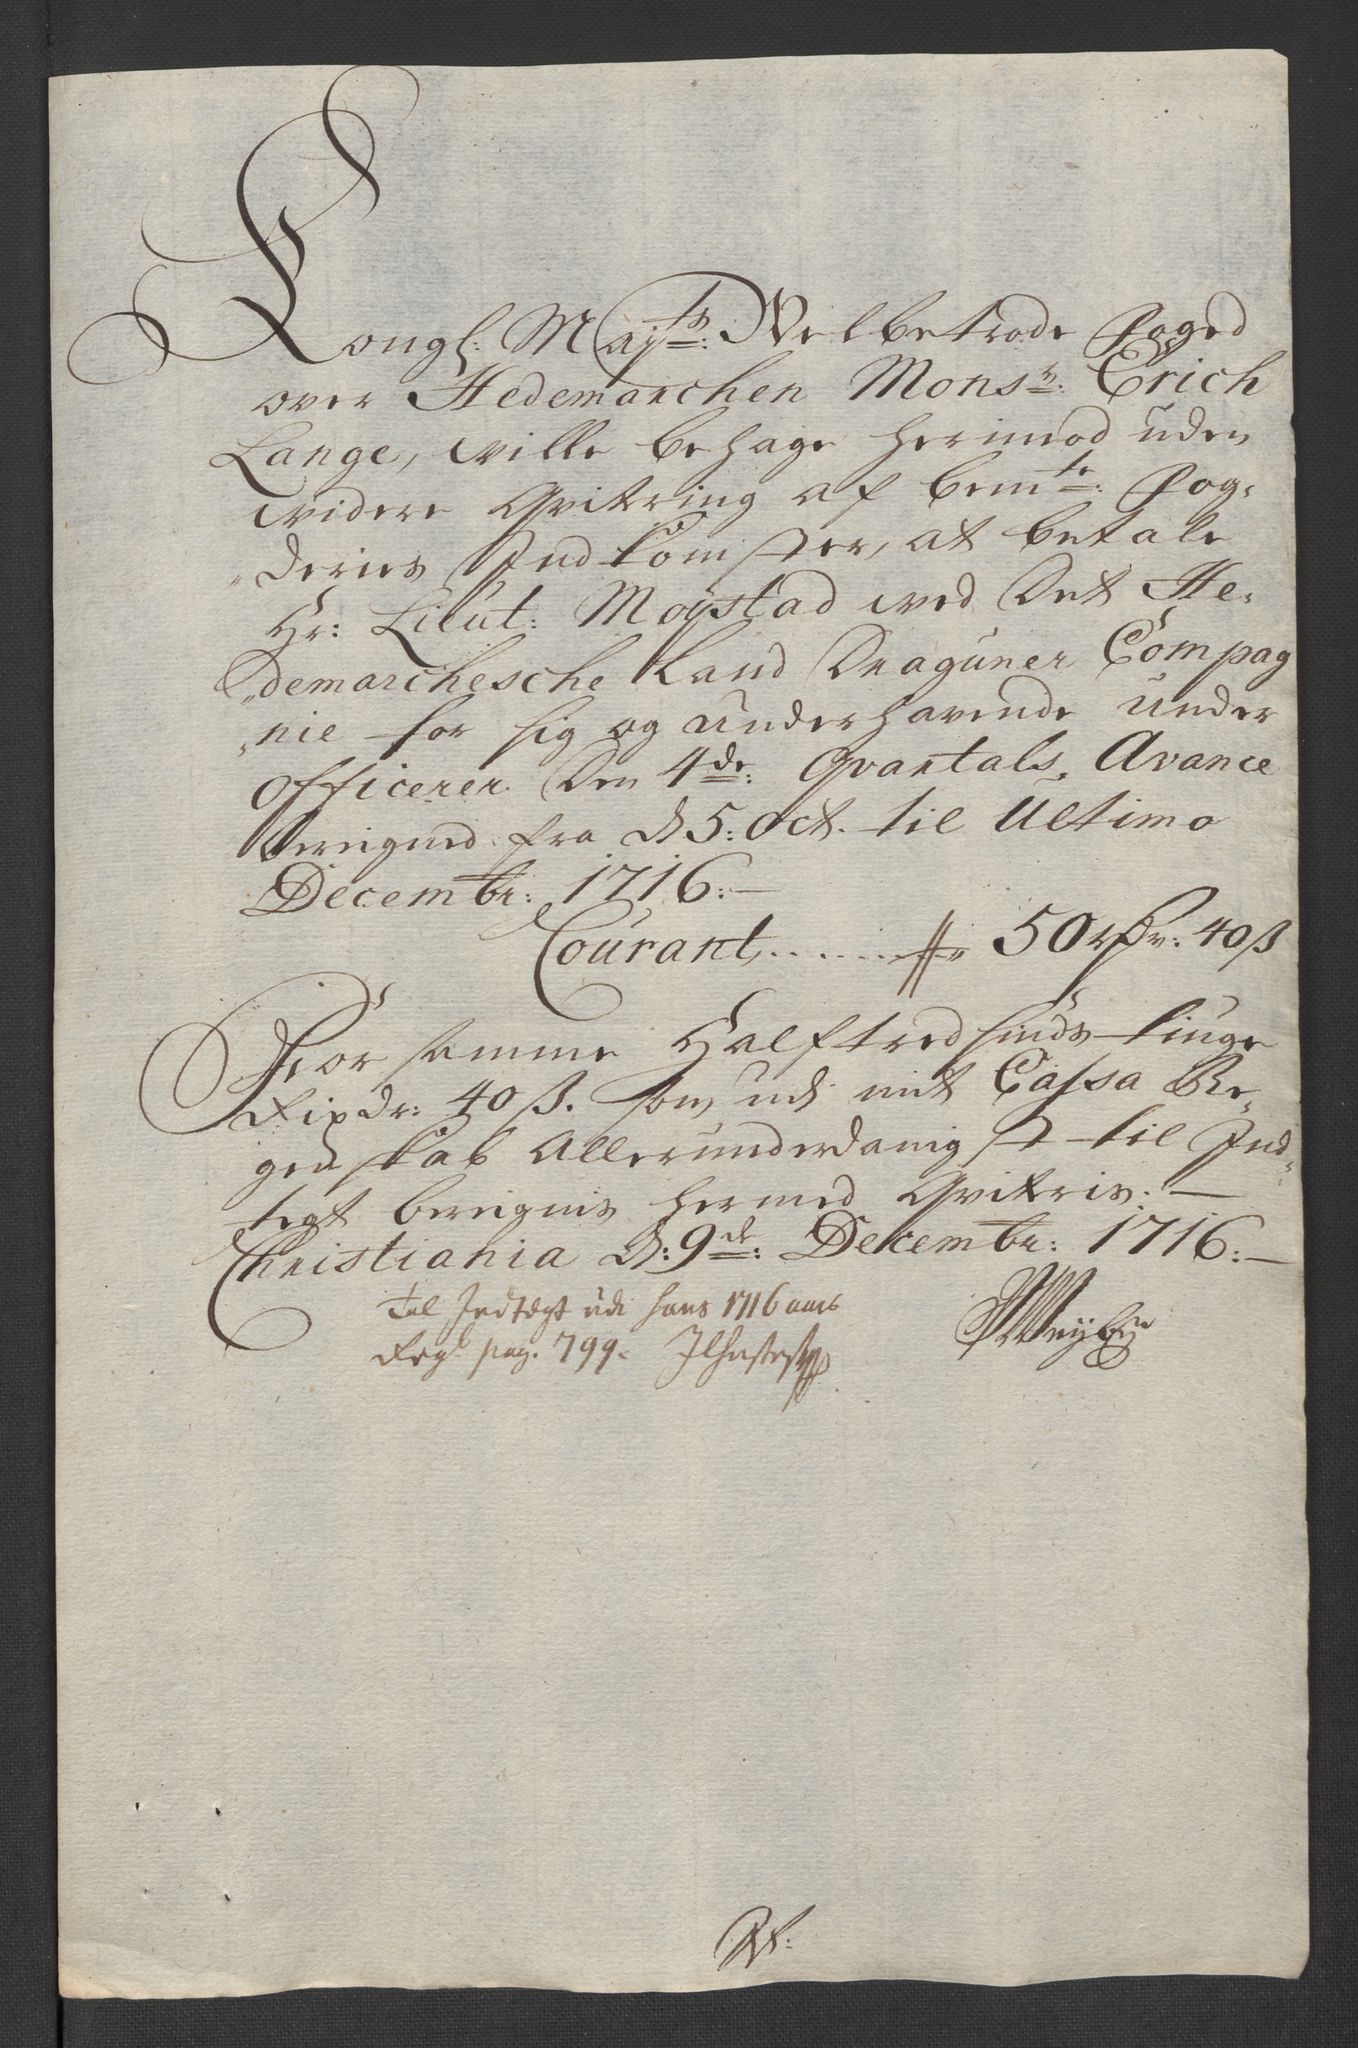 Kongl: Mayts: Velbetrode Foged
over Hedemarchen Monsr: Erich
Lange, wille behage herimod uden
widere Qvitering af bemte: Fog-
deries Indkomster, at betale
Hr: Lieut: Mojstad wed Det He-
demarchesche Land Draguner Compag
nie for sig og underhavende under
Officerer Den 4de: Qvartals Avance
bereignid fra d 5: Oct. til Ultimo
Decembr: 1716:—
Courant ....... 50 rdr: 40 ß
For samme Halftredsinds-tiuge
Rixdr: 40 ß. som udi mit Cassa Re-
genskab Allerunderdanigst til Ind-
tegt bereignis hermed Qviteris. —
Christiania d: 9de: Decembr: 1716:—
Til Indtegt udi hans 1716 aars
Regb pag. 799.